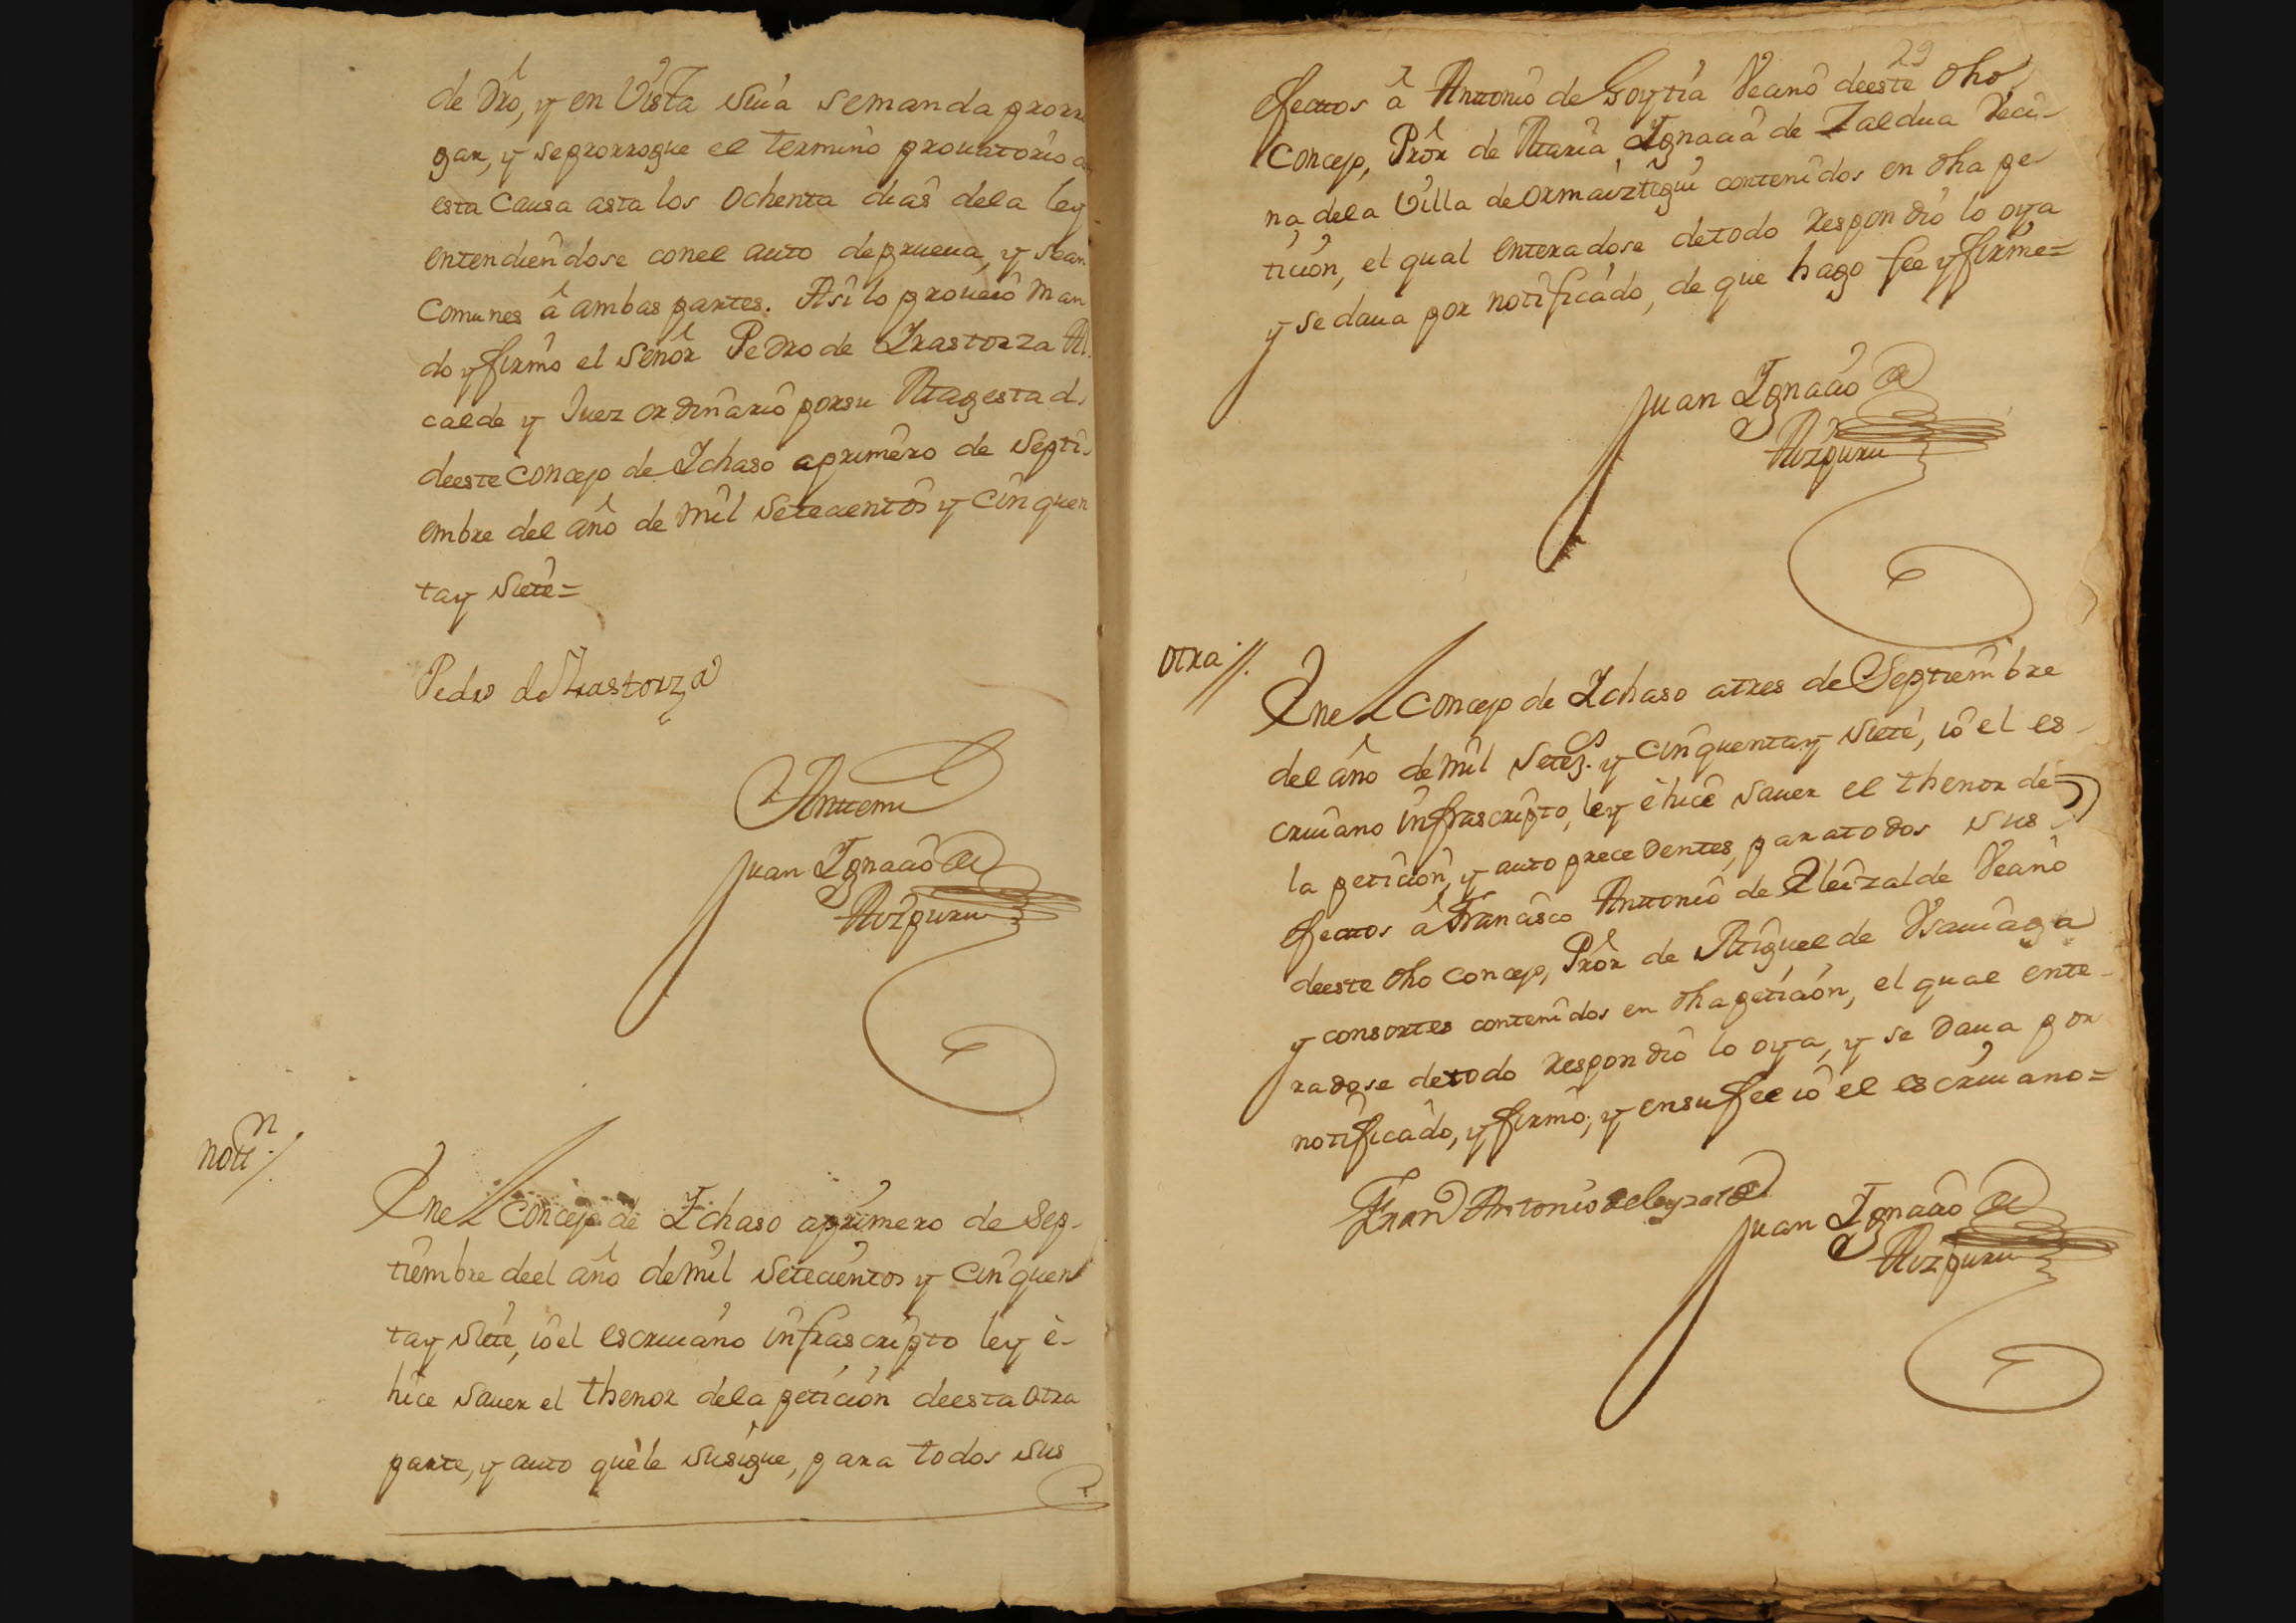 de Dro, y en Vista suia semanda prorro
gar, y seprorrogue el termino prouatorio de
esta Causa asta los ochenta dias dela ley
entendiendose conel auto deprueua, y sean
Comunes â ambas partes. Asi lo proueiô man
do y firmô el señor Pedro de Irastorza Al
calde y Juez ordinario porsu Magestad.
deeste Concejo de Ichaso aprimero de Septi-
embre del año de mil setecientos y cinquen
tay siete=
Pedro de Irastorza
Antemi
Juan Ignacio de
Aizpuru
notin./.
Enel Concejo de Ichaso aprimero de Sep-
tiembre deel año demil setecientos y cinquen
tay siete, io el escriuano infrascripto ley ê-
hice sauer el thenor dela peticion deesta otra
parte, y auto quele susigue, para todos sus
29
efectos â Antonio de Goytia Veano deeste dho
Concejo, Pror de Maria Ignacia de Zaldua Veci-
na dela Villa de Ormaiztegui contenidos en dha pe
ticion, el qual enteradose detodo respondiô lo oya
y se daua por notificado, de que hago fee y firme=
Juan Ignacio de
Aizpuru
otra //.
Enel Concejo de Ichaso atres de Septiembre
del año de mil setezs. y cinquentay siete, io el es-
criuano infrascripto, ley ê hice sauer el thenor de
la peticion, y auto precedentes, paratodos sus
efectos â Francisco Antonio de Eleizalde Veano
deeste dho Concejo, Pror de Miguel de Vsauiaga
y consortes contenidos en dha peticion, el qual ente-
radose detodo respondiô lo oya, y se daua por
notificado, y firmô; y ensufee io el escriuano=
Fran Antonio deleyzalde
Juan Ignacio de
Aizpuru